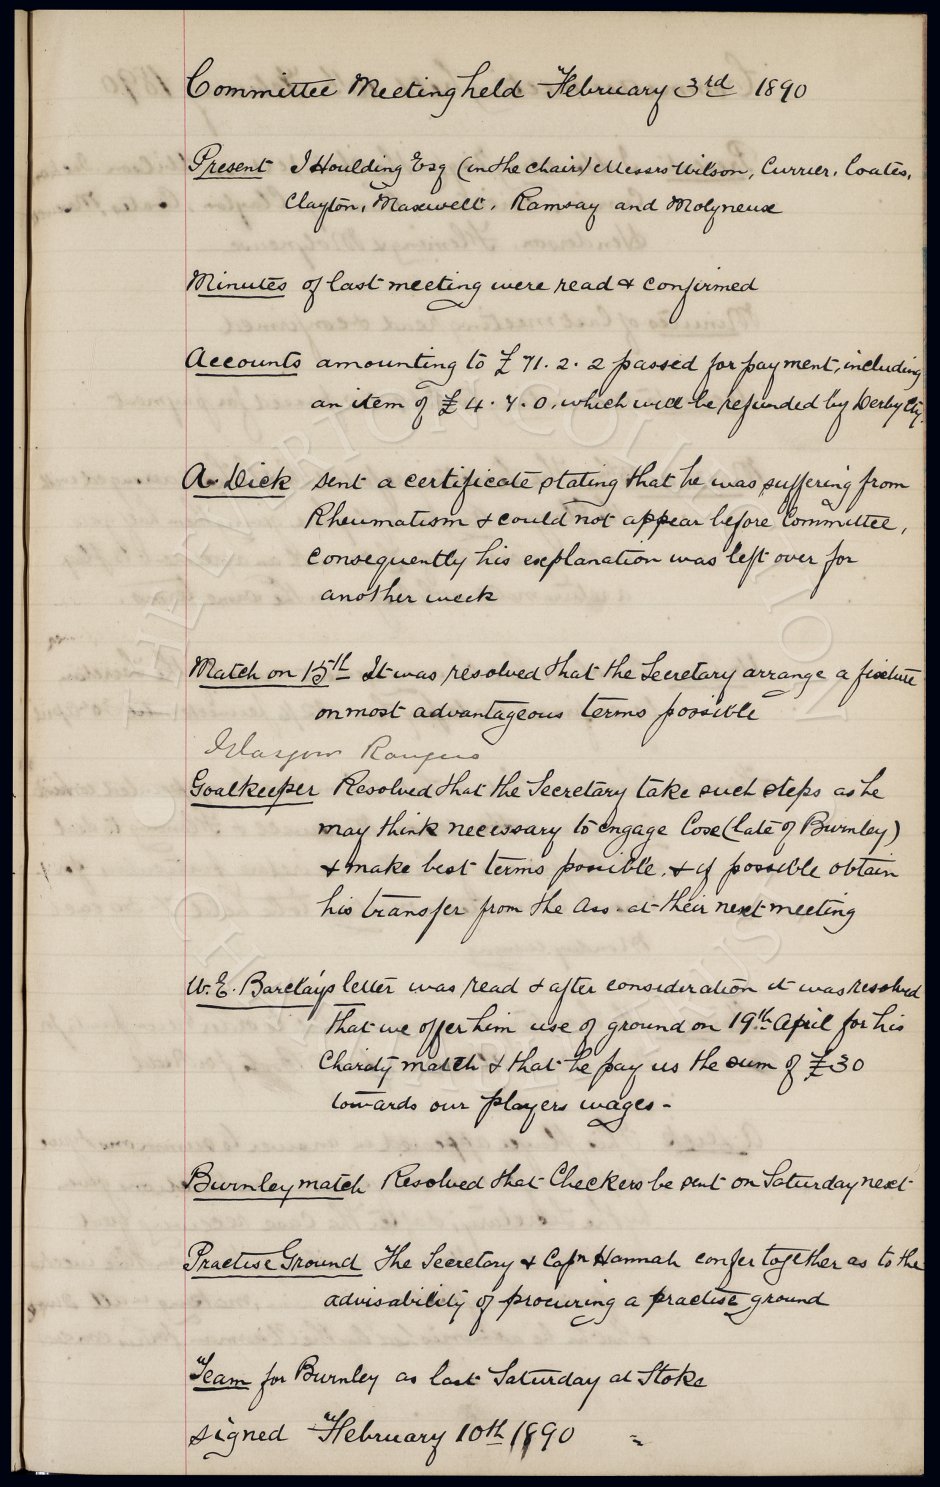 Committee Meeting held February 3rd 1890
Present J Houlding Esq (in the chair) Messrs Wilson, Currier, Coates,
Clayton, Maxwell, Ramsay and Molyneux
Minutes of last meeting were read & confirmed
Accounts amounting to £71.2.2 passed for payment, including
an item of £4.7.0. which will be refunded by Derby Cty.
A. Dick sent a certificate stating that he was suffering from
Rheumatism & could not appear before Committee,
consequently his explanation was left over for
another week
Match on 15th It was resolved that the Secretary arrange a fixture
on most advantageous terms possible
Glasgow Rangers
Goalkeeper Resolved that the Secretary take such steps as he
may think necessary to engage Cox (late of Burnley)
& make best terms possible, & if possible obtain
his transfer from the Ass. at their next meeting
W.E. Barclay's letter was read & after consideration it was resolved
that we offer him use of ground on 19th April for his
Charity match & that he pay us the sum of £30
towards our players wages -
Burnley match Resolved that Checkers be sent on Saturday next
Practise Ground The Secretary & Capn Hannah confer together as to the
advisability of procuring a practise ground
Team for Burnley as last Saturday at Stoke
signed February 10th 1890
THE EVERTON COLLECTION